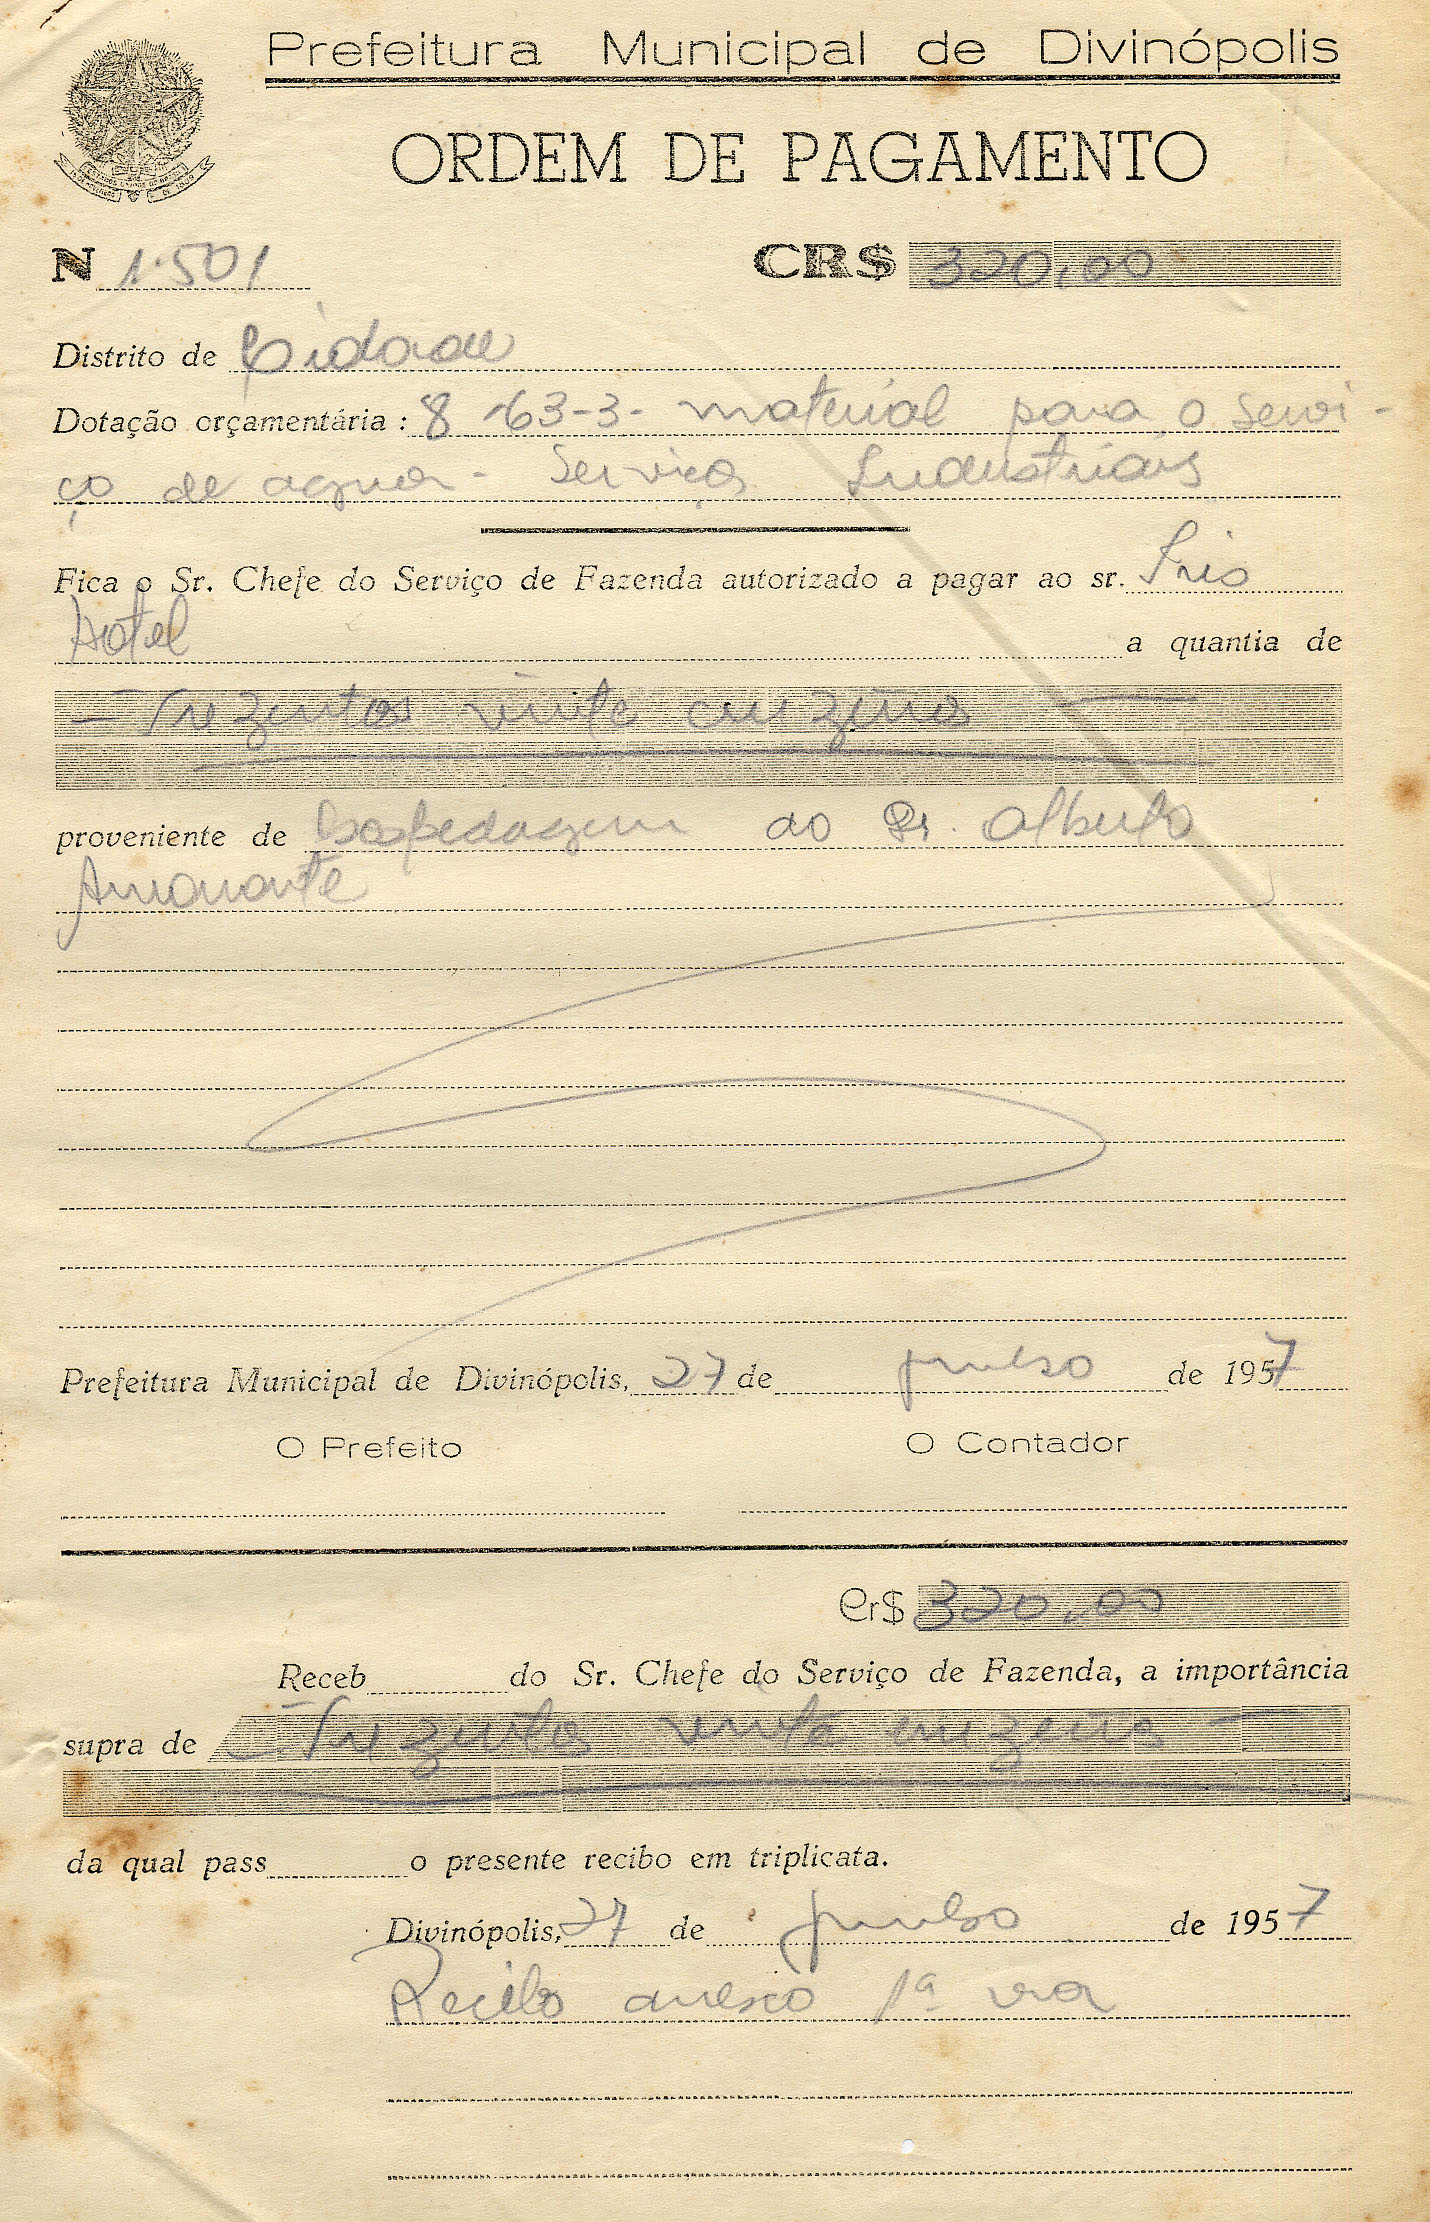 Prefeitura Municipal de Divinópolis
ORDEM DE PAGAMENTO
N 1.501 CR$ 320,00
Distrito de Cidade
Dotação orçamentária: 8-63-3- material para o servi-
ço de agua - Serviços Industriais
Fica o Sr. Chefe do Serviço de Fazenda autorizado a pagar ao sr. Iris
Hotel a quantia de
- Trezentos vinte cruzeiros
proveniente de hospedagem ao Dr. Alberto
Amarante
Prefeitura Municipal de Divinópolis, 27 de junho de 1957
O Prefeito O Contador
Cr$ 320,00
Receb do Sr. Chefe do Serviço de Fazenda, a importância
supra de - Trezentos vinte cruzeiros -
da qual pass o presente recibo em triplicata.
Divinópolis, 27 de junho de 1957
Recibo anexo 1ª via